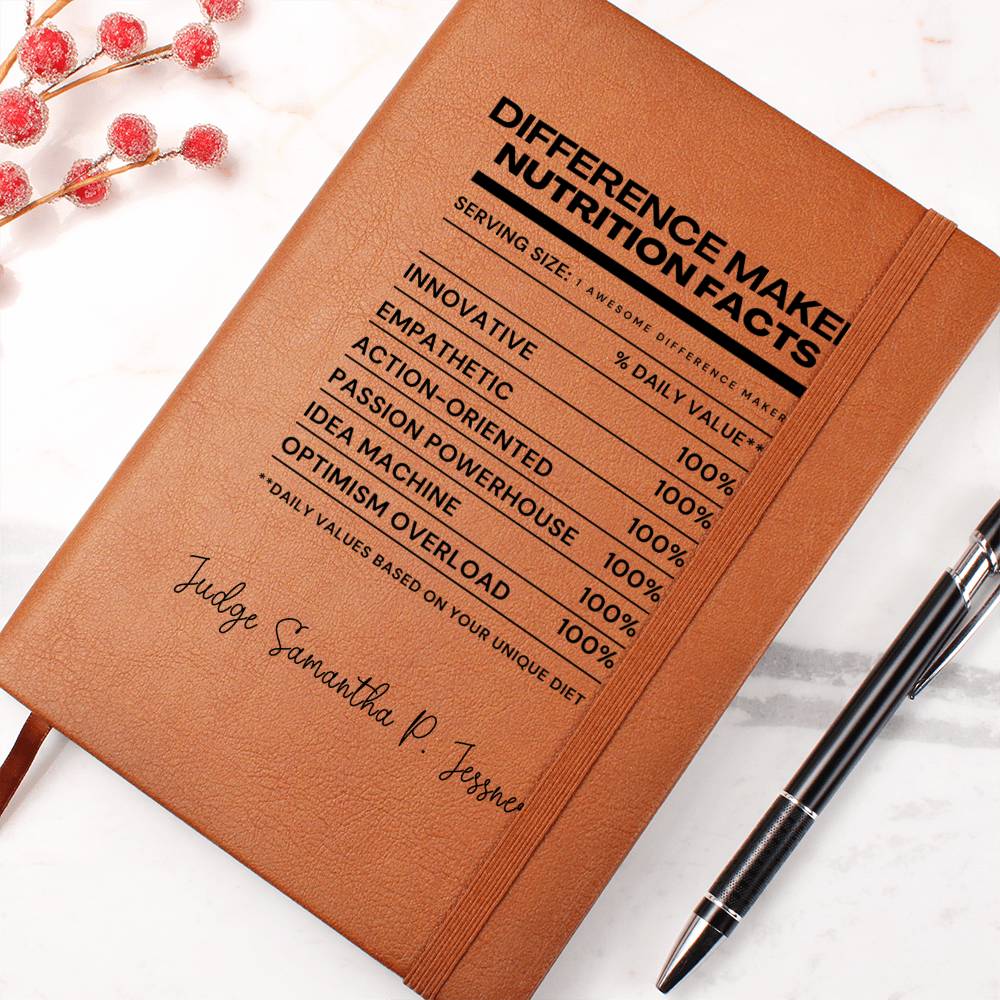 DIFFERENCE MAKER
NUTRITION FACTS
SERVING SIZE: 1 AWESOME DIFFERENCE MAKER
% DAILY VALUE**
INNOVATIVE 100%
EMPATHETIC 100%
ACTION-ORIENTED 100%
PASSION POWERHOUSE 100%
IDEA MACHINE 100%
OPTIMISM OVERLOAD 100%
**DAILY VALUES BASED ON YOUR UNIQUE DIET
Judge Samantha P. Jessner